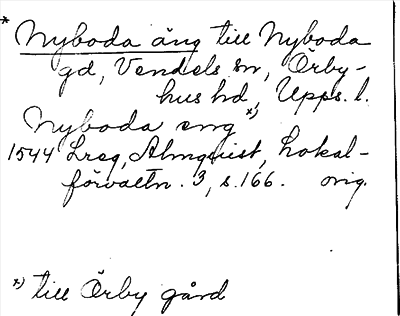 * Nyboda äng till Nyboda
gd, Vendels sn, Örby-
hus hd, Upps. l.
Nyboda eng *)
1544 Lreg, Almquist, Lokal-
förvaltn. 3, s. 166. orig.
*) till Örby gård